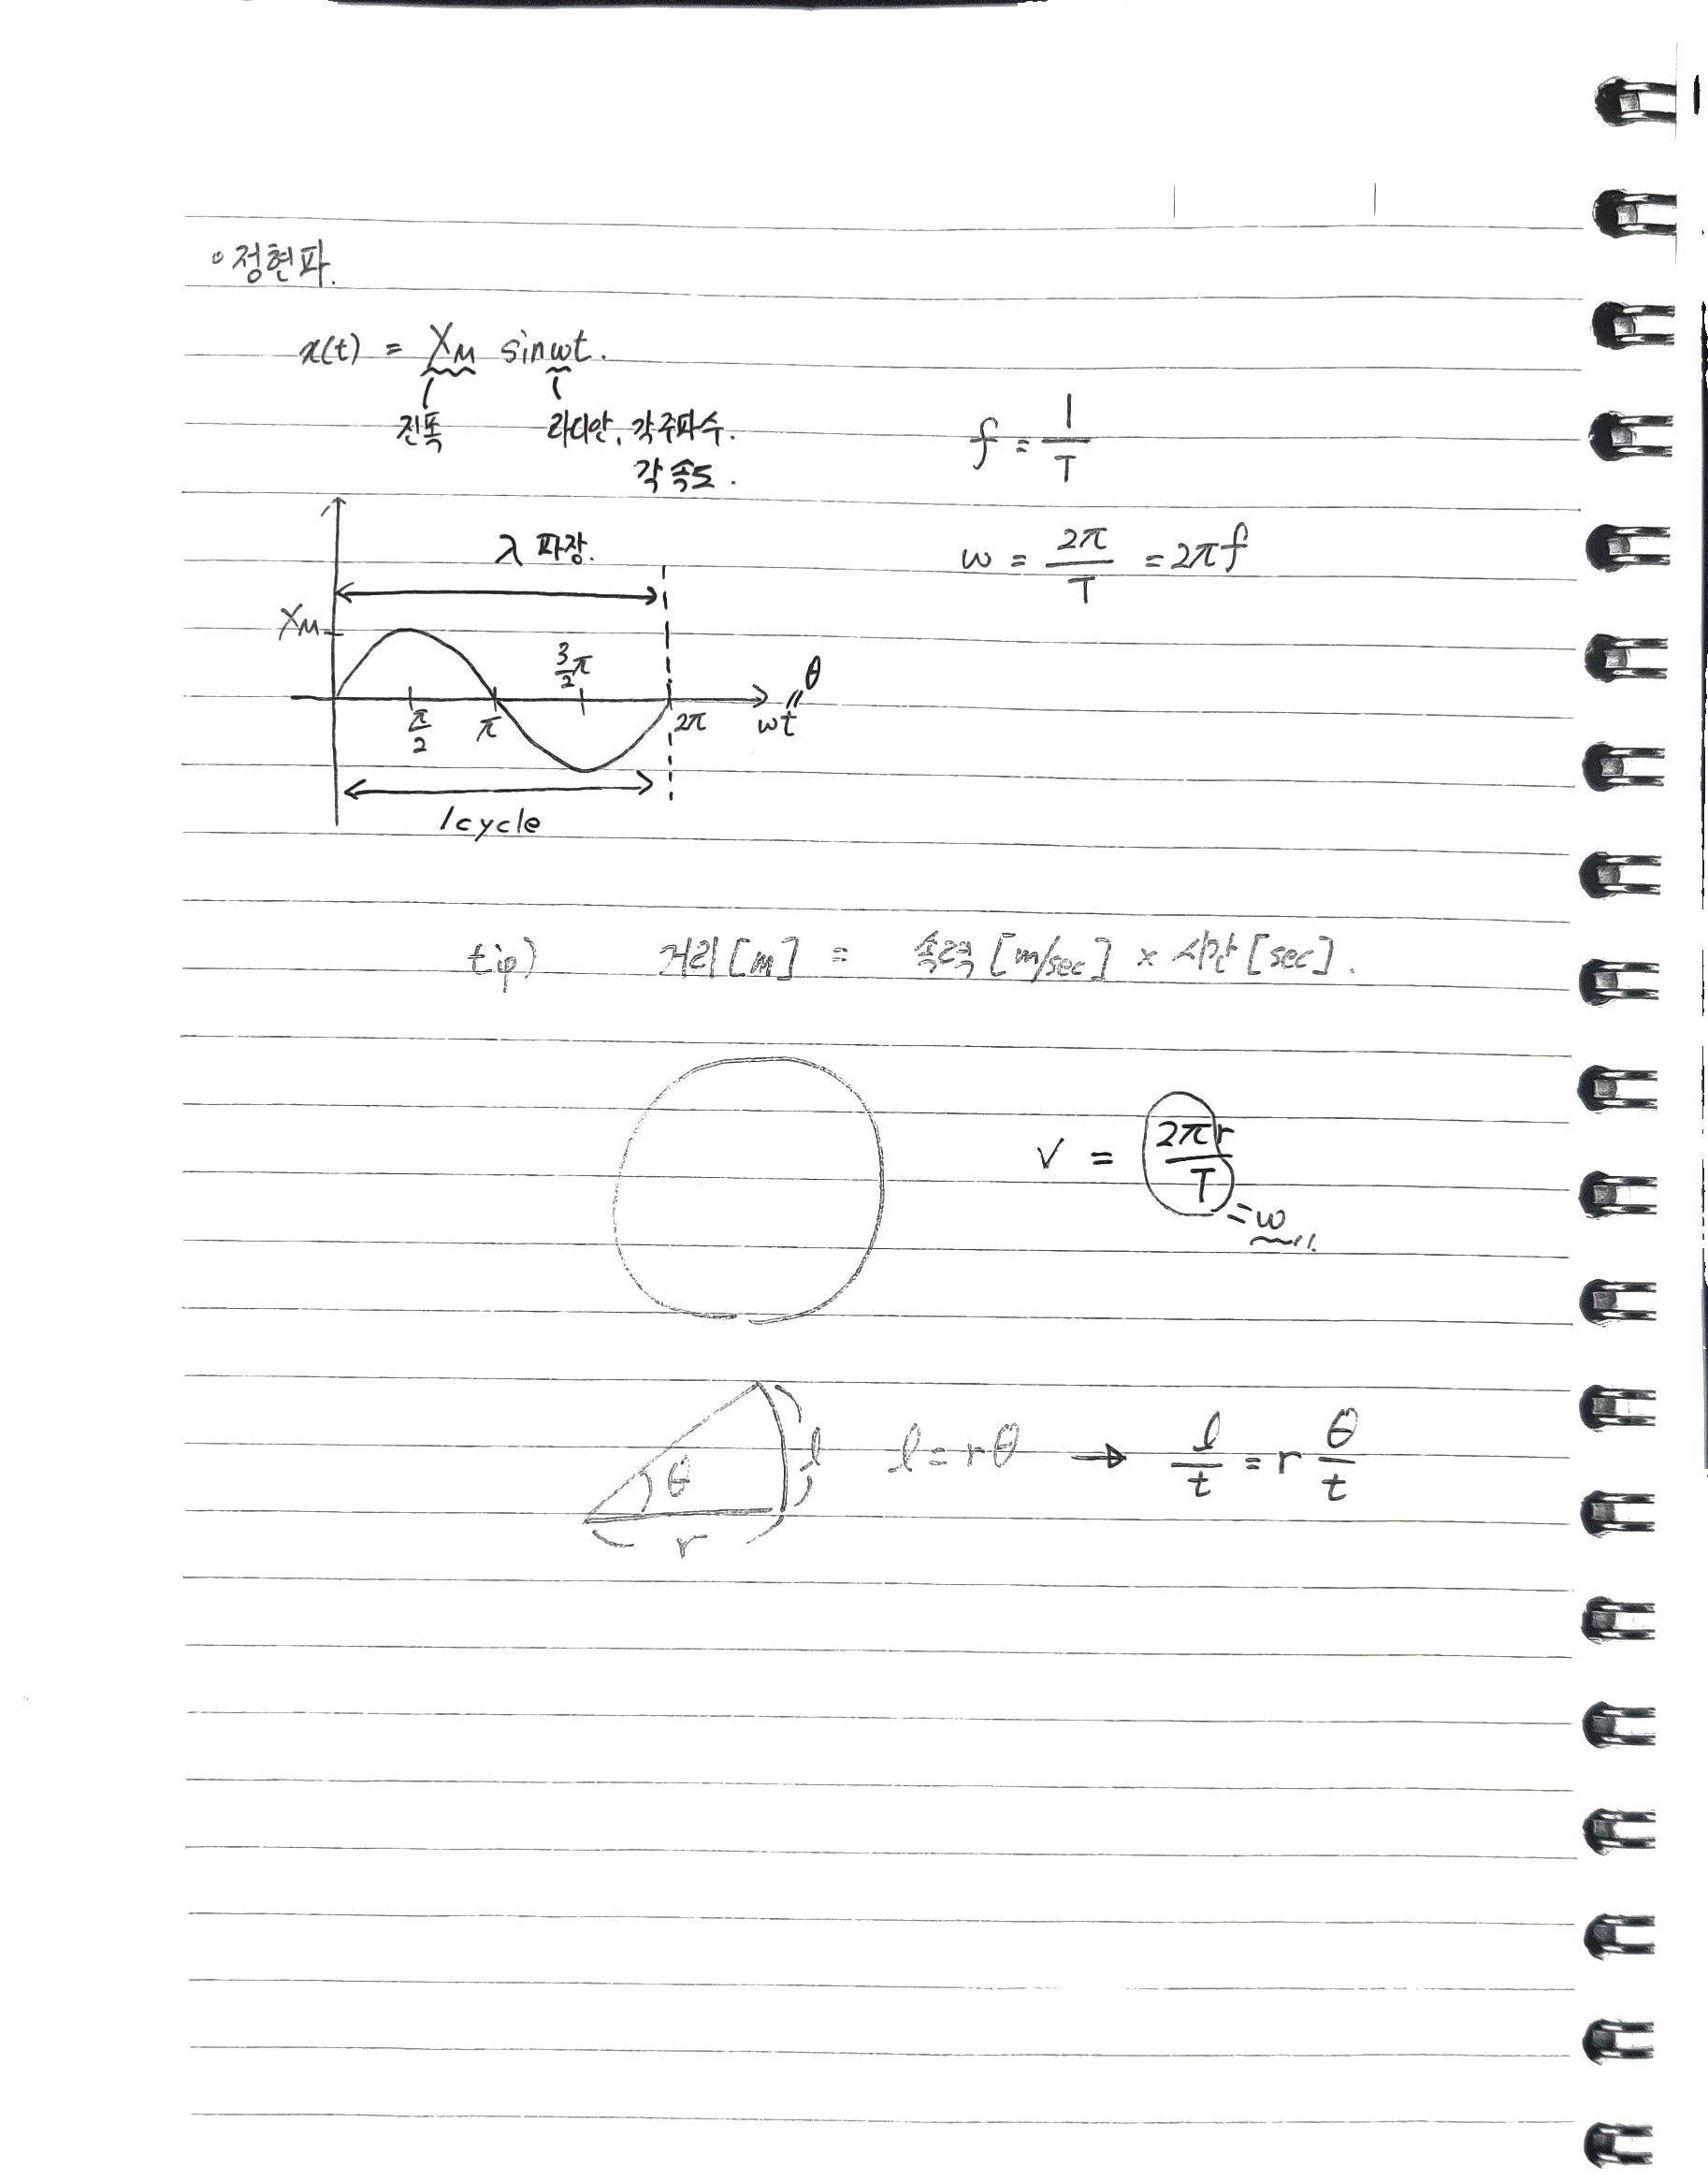 ∘정현파.
x(t) = X_M sinωt.
진폭 라디안, 각주파수.
각속도.
f = 1/T
ω = 2π/T = 2πf
λ 파장.
X_M
π/2 π 3/2π 2π ωt = θ
1cycle
tip) 거리[m] = 속력[m/sec] × 시간[sec].
V = 2πr/T
=ω
θ
r
l
l = rθ → l/t = r θ/t